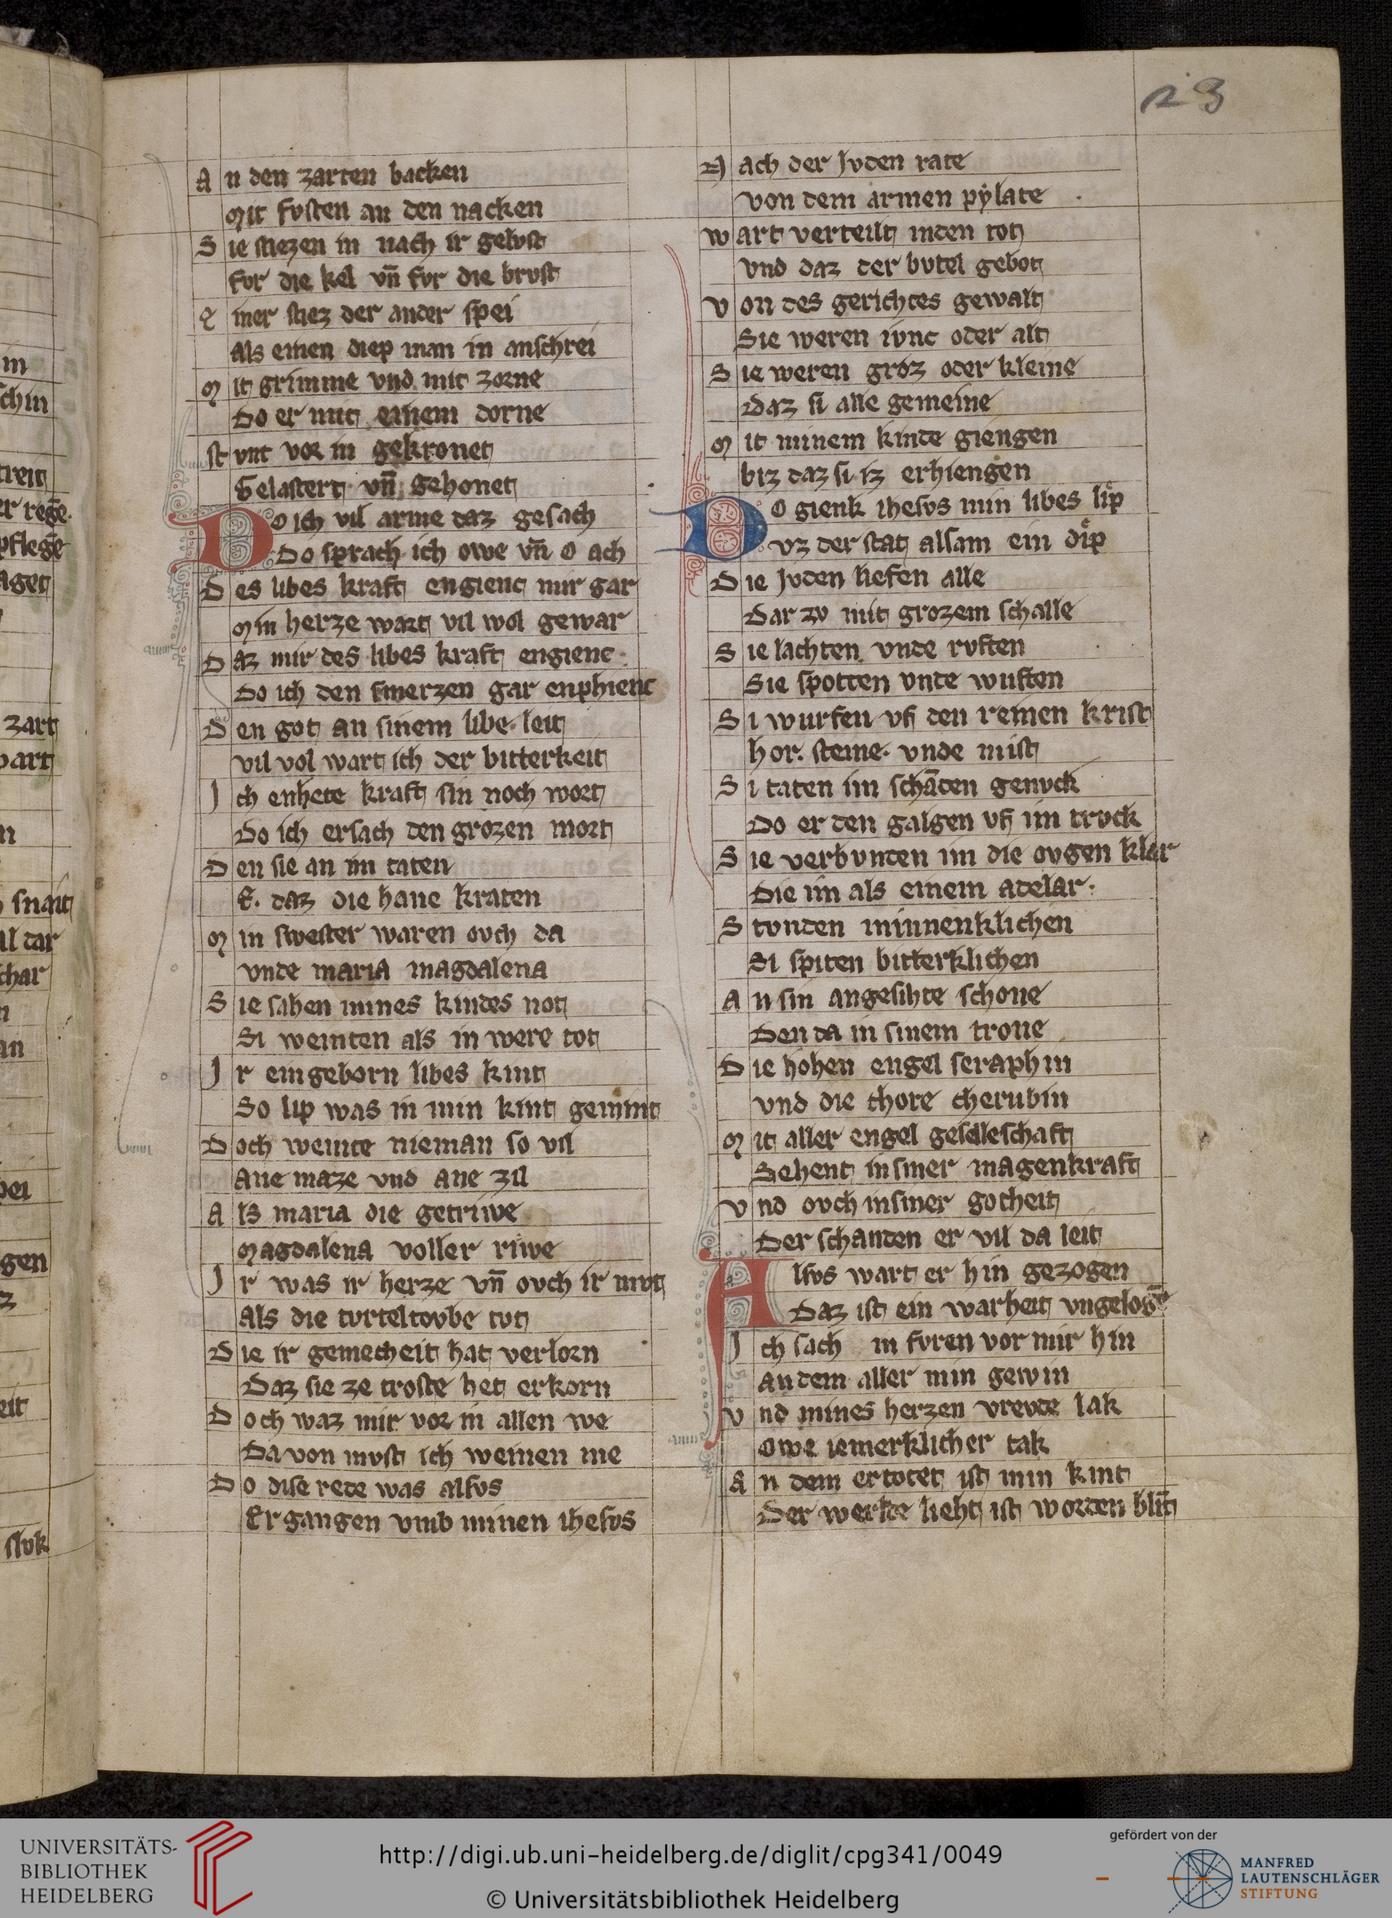 23
An den zarten backen
Mit fvsten an den nacken
Sie stiezen in nach ir gelvst
fvr die kel vn̄ fvr die brvst
Einer stiez der ander spei
Als einen diep man in anschrei
Mit grimme vnd mit zorne
Do er mit einem dorne
stvnt vor in gekronet
Gelastert vn̄ gehonet
Do ich vil arme daz gesach
Do sprach ich owe vn̄ o ach
Des libes kraft engienc mir gar
Min herze wart vil wol gewar
Daz mir des libes kraft engienc
Do ich den smerzen gar enphienc
Den got an sinem libe leit
vil vol wart ich der bitterkeit
Ich enhete kraft sin noch wort
Do ich ersach den grozen mort
Den sie an im taten
E. daz die hane kraten
Min swester waren ovch da
vnde maria magdalena
Sie sahen mines kindes not
Si weinten als in were tot
Ir eingeborn libes kint
So lip was in min kint gemint
Doch weinte nieman so vil
Ane maze vnd ane zil
Als maria die getriwe
Magdalena voller riwe
Ir was ir herze vn̄ ovch ir mvt
Als die tvrteltovbe tvt
Die ir gemecheit hat verlorn
Daz sie ze troste het erkorn
Doch waz mir vor in allen we
Da von mvst ich weinen me
Do dise rede was alsvs
Ergangen vmb minen ihesvs
Nach der Jvden rate
von dem armen pylate
wart verteilt in den tot
vnd daz der bvtel gebot
von des gerichtes gewalt
Sie weren ivnc oder alt
Sie weren groz oder kleine
daz si alle gemeine
Mit minem kinde giengen
biz daz si iz erhiengen
Do gienk ihesvs min libes lip
vz der stat alsam ein dip
Die Jvden liefen alle
Dar zv mit grozem schalle
Sie lachten vnde rvften
Sie spotten vnde wuften
Si wurfen vf den reinen krist
hor. steine. vnde mist
Si taten im schāden genvck
Do er den galgen vf im trvck
Sie verbvnden im die ovgen klar
Die im als einem adelar.
Stvnden minnenklichen
Si spiten bitterklichen
An sin angesihte schone
Den da in sinem trone
Die hohen engel seraphin
vnd die chore cherubin
Mit aller engel geselleschaft
Sehent in siner magenkraft
vnd ovch in siner gotheit
Der schanden er vil da leit
Alsvs wart er hin gezogen
Daz ist ein warheit vngelogē
Ich sach in fvren vor mir hin
an dem aller min gewin
vnd mines herzen vrevde lak
Owe iemerklicher tak
An dem ertotet ist min kint
Der werlde lieht ist worden blīt
UNIVERSITÄTS-
BIBLIOTHEK
HEIDELBERG
http://digi.ub.uni-heidelberg.de/diglit/cpg341/0049
© Universitätsbibliothek Heidelberg
gefördert von der
MANFRED
LAUTENSCHLÄGER
STIFTUNG